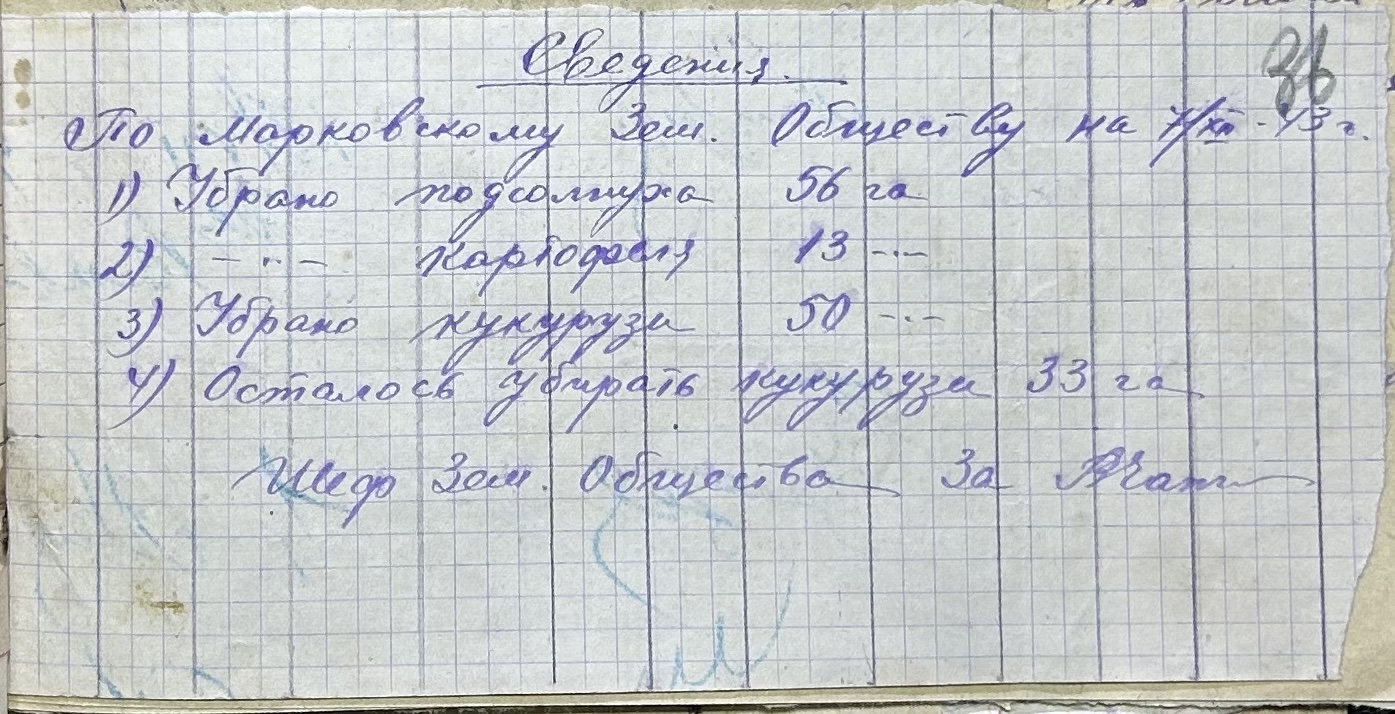 86
Сведения.
По Марковскому Зем. Обществу на 7/XII-43 г.
1) Убрано подсолнуха 56 га
2) -·- картофеля 13 -·-
3) Убрано кукурузи 50 -·-
4) Осталось убирать кукурузи 33 га
Шеф Зем. Общества За